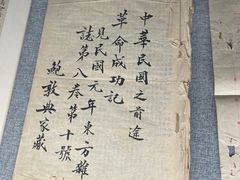 中華民國之前途
革命成功記
見民國元年東方雜
誌第八卷第十號
鮑敦典家藏